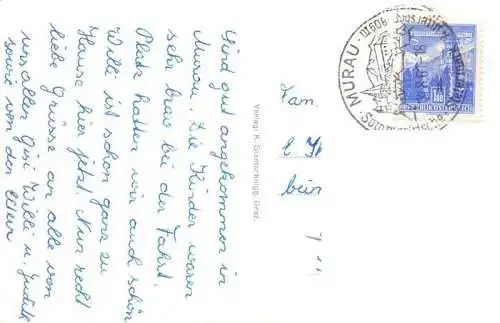 Sind gut angekommen in
Murau. Die Kinder waren
sehr brav bei der Fahrt.
Platz hatten wir auch schön
Willi ist schon ganz zu
Hause hier jetzt. Nun recht
liebe Grüsse an alle von
uns allen Gisi Willi u. Judith
sowie von den Eltern
Verlag: K. Glantschnigg, Graz.
Fam.
MURAU
REPUBLIK ÖSTERREICH